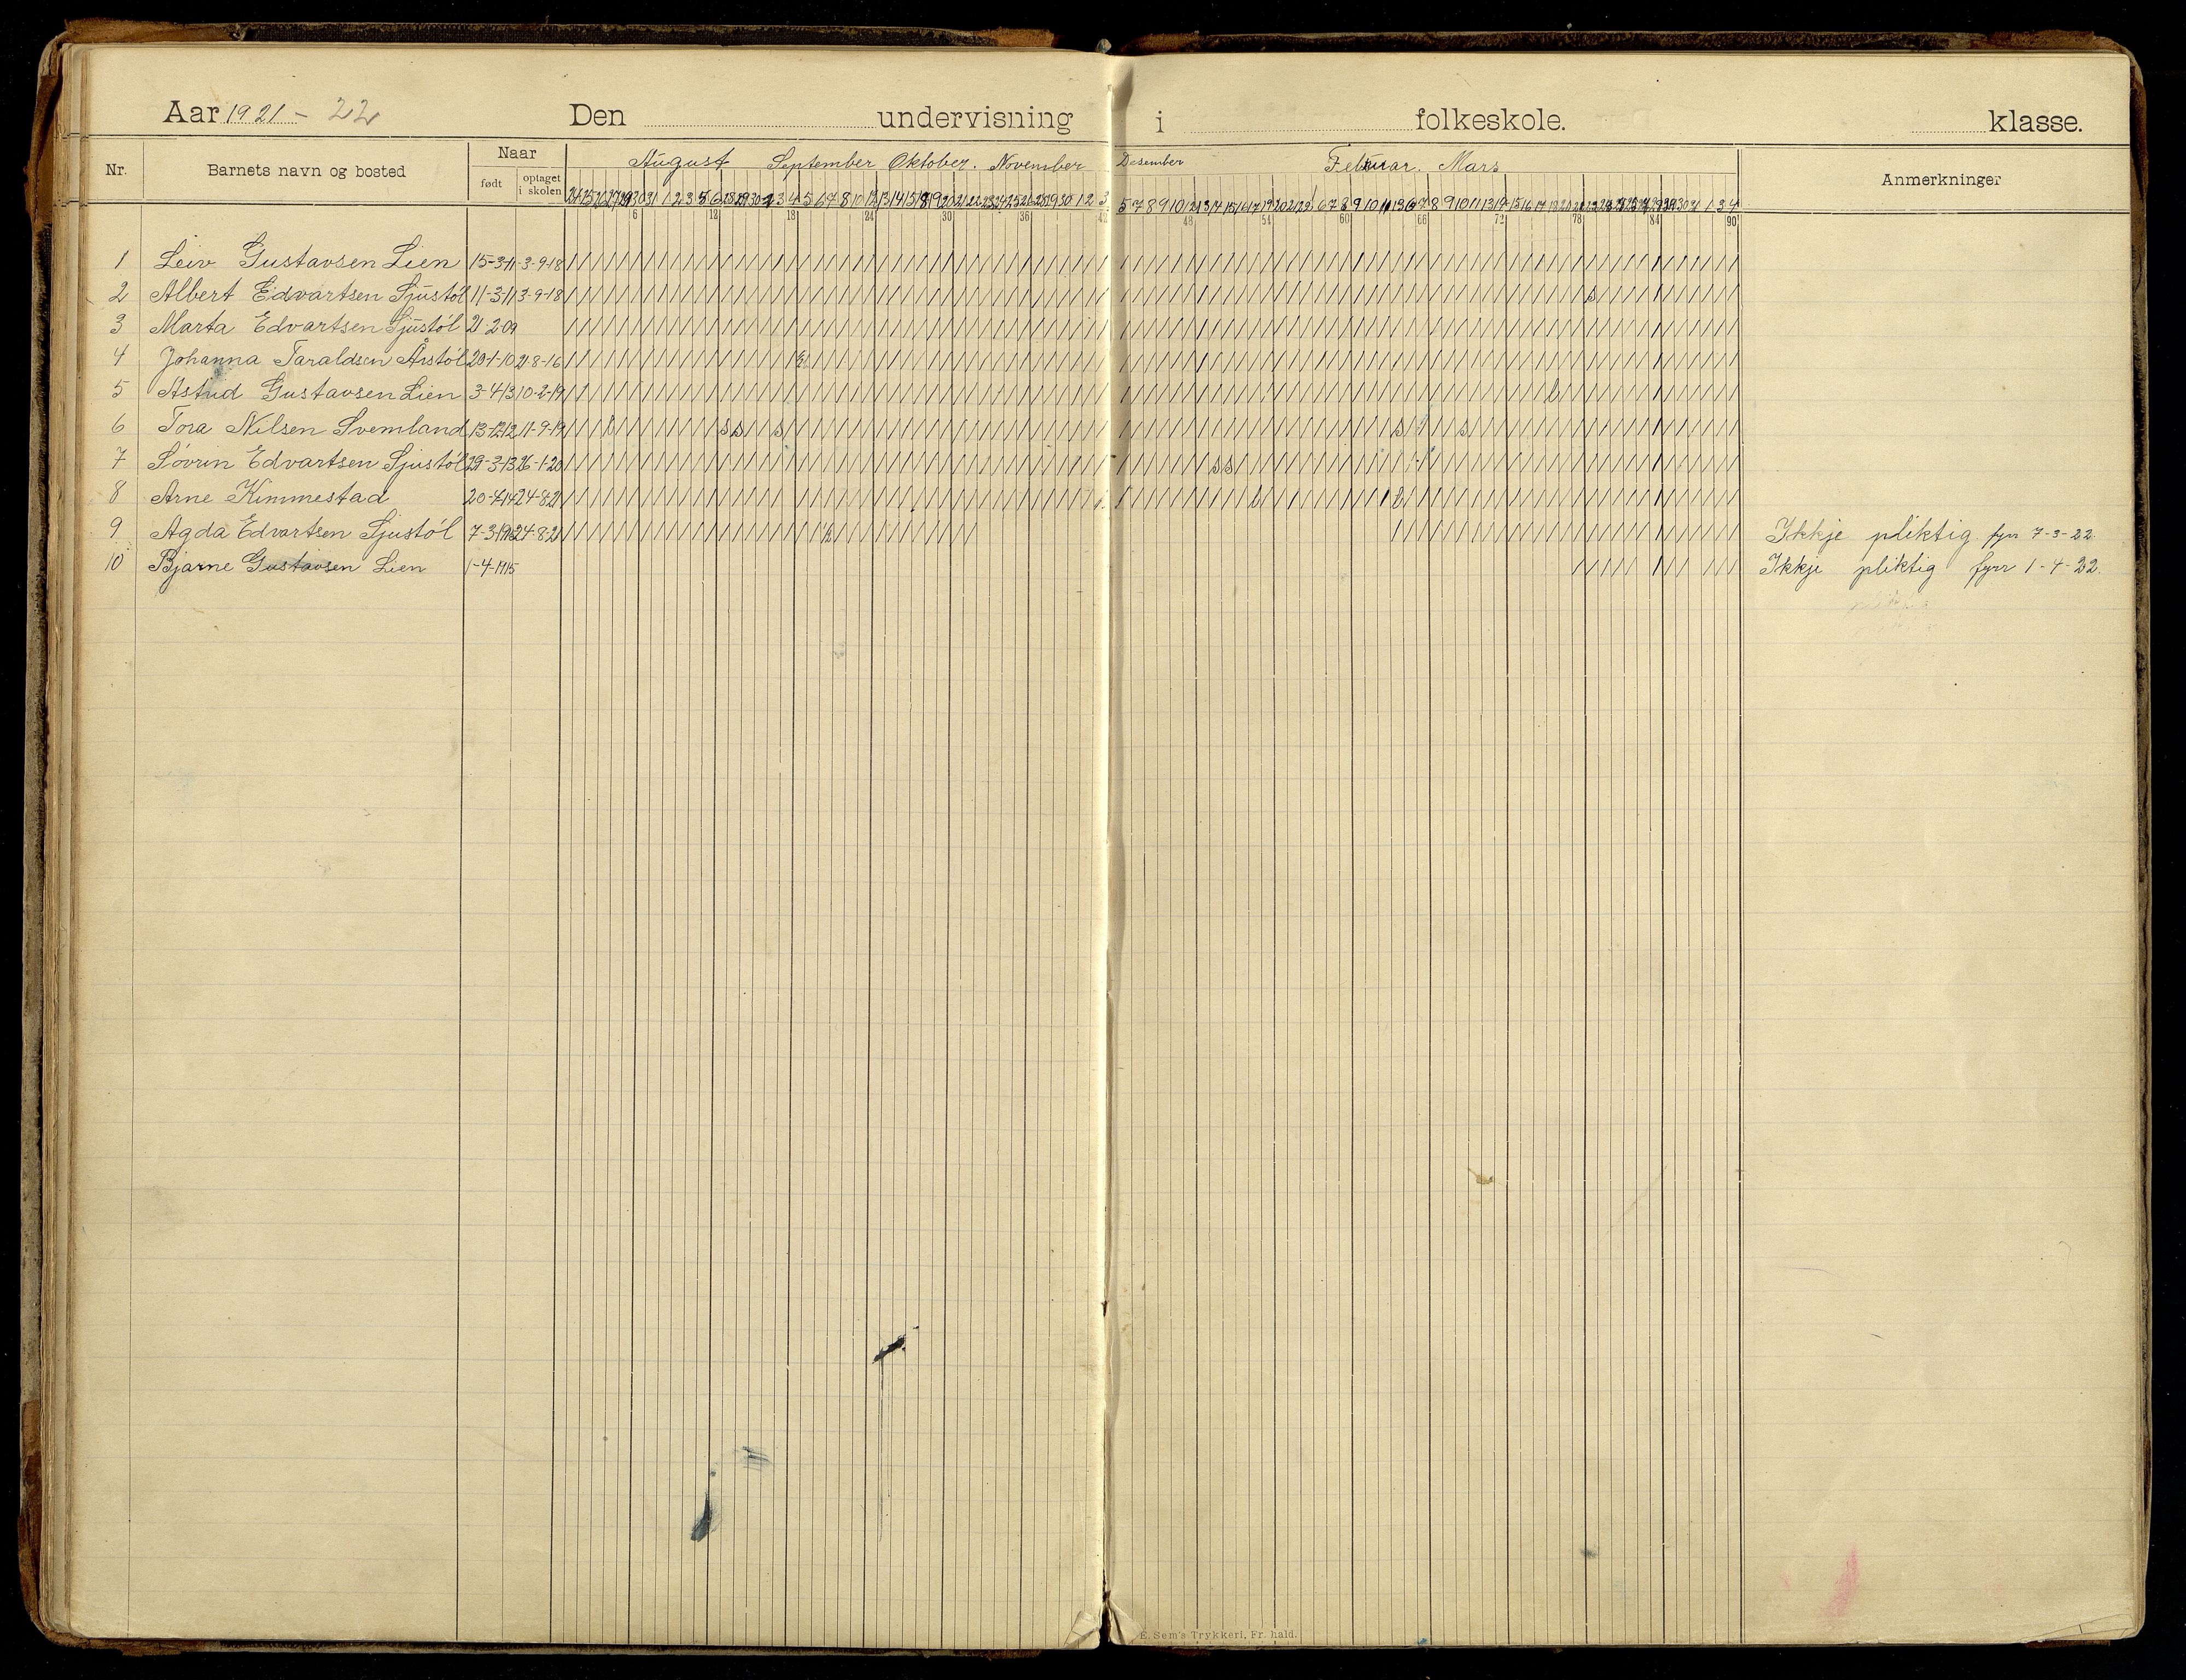 Aar 1921 - 22 Den undervisning i folkeskole. klasse.
Nr. Barnets navn og bosted Naar født optaget i skolen August September Oktober. November Desember Februar. Mars Anmerkninger
6 12 18 24 30 36 42 48 54 60 66 72 78 84 90
1 Leiv Gustavsen Lien 15-3-11 3-9-18
2 Albert Edvartsen Sjustøl 11-3-11 3-9-18
3 Marta Edvartsen Sjustøl 21-2-09
4 Johanna Taraldsen Årstøl 20-1-10 21-8-16
5 Astrid Gustavsen Lien 3-4-13 10-2-19
6 Tora Nilsen Svemland 13-12-12 11-9-19
7 Søvrin Edvartsen Sjustøl 29-3-13 26-1-20
8 Arne Kimmestad 20-4-14 24-8-21
9 Agda Edvartsen Sjustøl 7-3-1915 24-8-21 Ikkje pliktig fyrr 7-3-22.
10 Bjarne Gustavsen Lien 1-4-1915 Ikkje pliktig fyrr 1-4-22.
E. Sem's Trykkeri, Fr. hald.